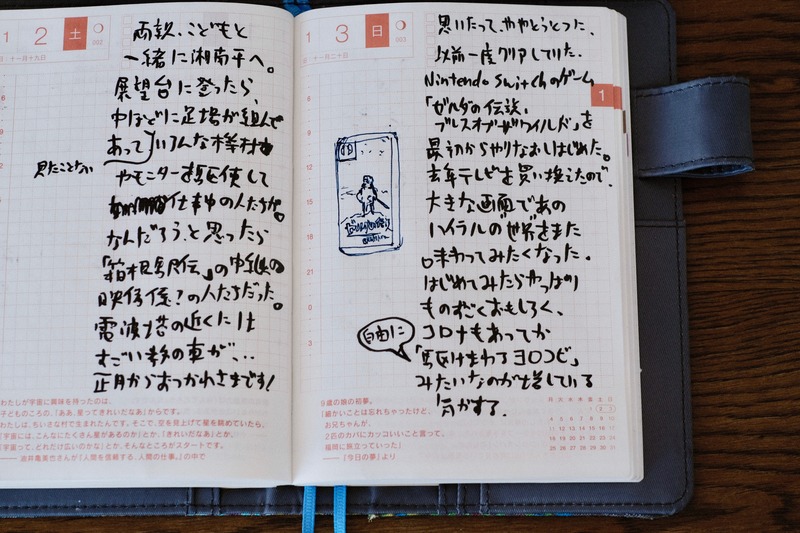 1 2 土
002
日：十一月十九日
両親、こどもと
一緒に湘南平へ。
展望台に登ったら、
中ほどに足場が組んで
あって いろんな機材
見たことない
やモニターを駆使して
仕事中の人たちが。
なんだろう、と思ったら
「箱根駅伝」の中継の
映像係？の人たちだった。
電波塔の近くには
すごい数の車が、、、
正月からおつかれさまです！
わたしが宇宙に興味を持ったのは、
子どものころの、「ああ、星ってきれいだなあ」からです。
わたしは、ちいさな村で生まれたんです。そこで、空を見上げて星を眺めていたら、
「宇宙には、こんなにたくさん星があるのか」とか、「きれいだなあ」とか、
「宇宙って、どれだけ広いのかな」とか、そんなところがスタートです。
—— 油井亀美也さんが『人間を信頼する、人間の仕事。』の中で
1 3 日
003
日：十一月二十日
思いたって、
以前一度クリアしていた
Nintendo Switchのゲーム
「ゼルダの伝説、
ブレスオブザワイルド」を
最初からやりなおしはじめた。
去年テレビを買い換えたので、
大きな画面であの
ハイラルの世界をまた
まわってみたくなった。
はじめてみたらやっぱり
ものすごくおもしろく、
コロナもあってか
自由に
「駆けまわるヨロコビ」
みたいなのが増している
気がする。
1
6
8
9
12
15
18
21
0
3
9歳の娘の初夢。
「細かいことは忘れちゃったけど、
お兄ちゃんが、
2匹のカバにカッコいいこと言って、
福岡に旅立っていった」
——『今日の夢』より
月 火 水 木 金 土 日
1 2 3
4 5 6 7 8 9 10
11 12 13 14 15 16 17
18 19 20 21 22 23 24
25 26 27 28 29 30 31